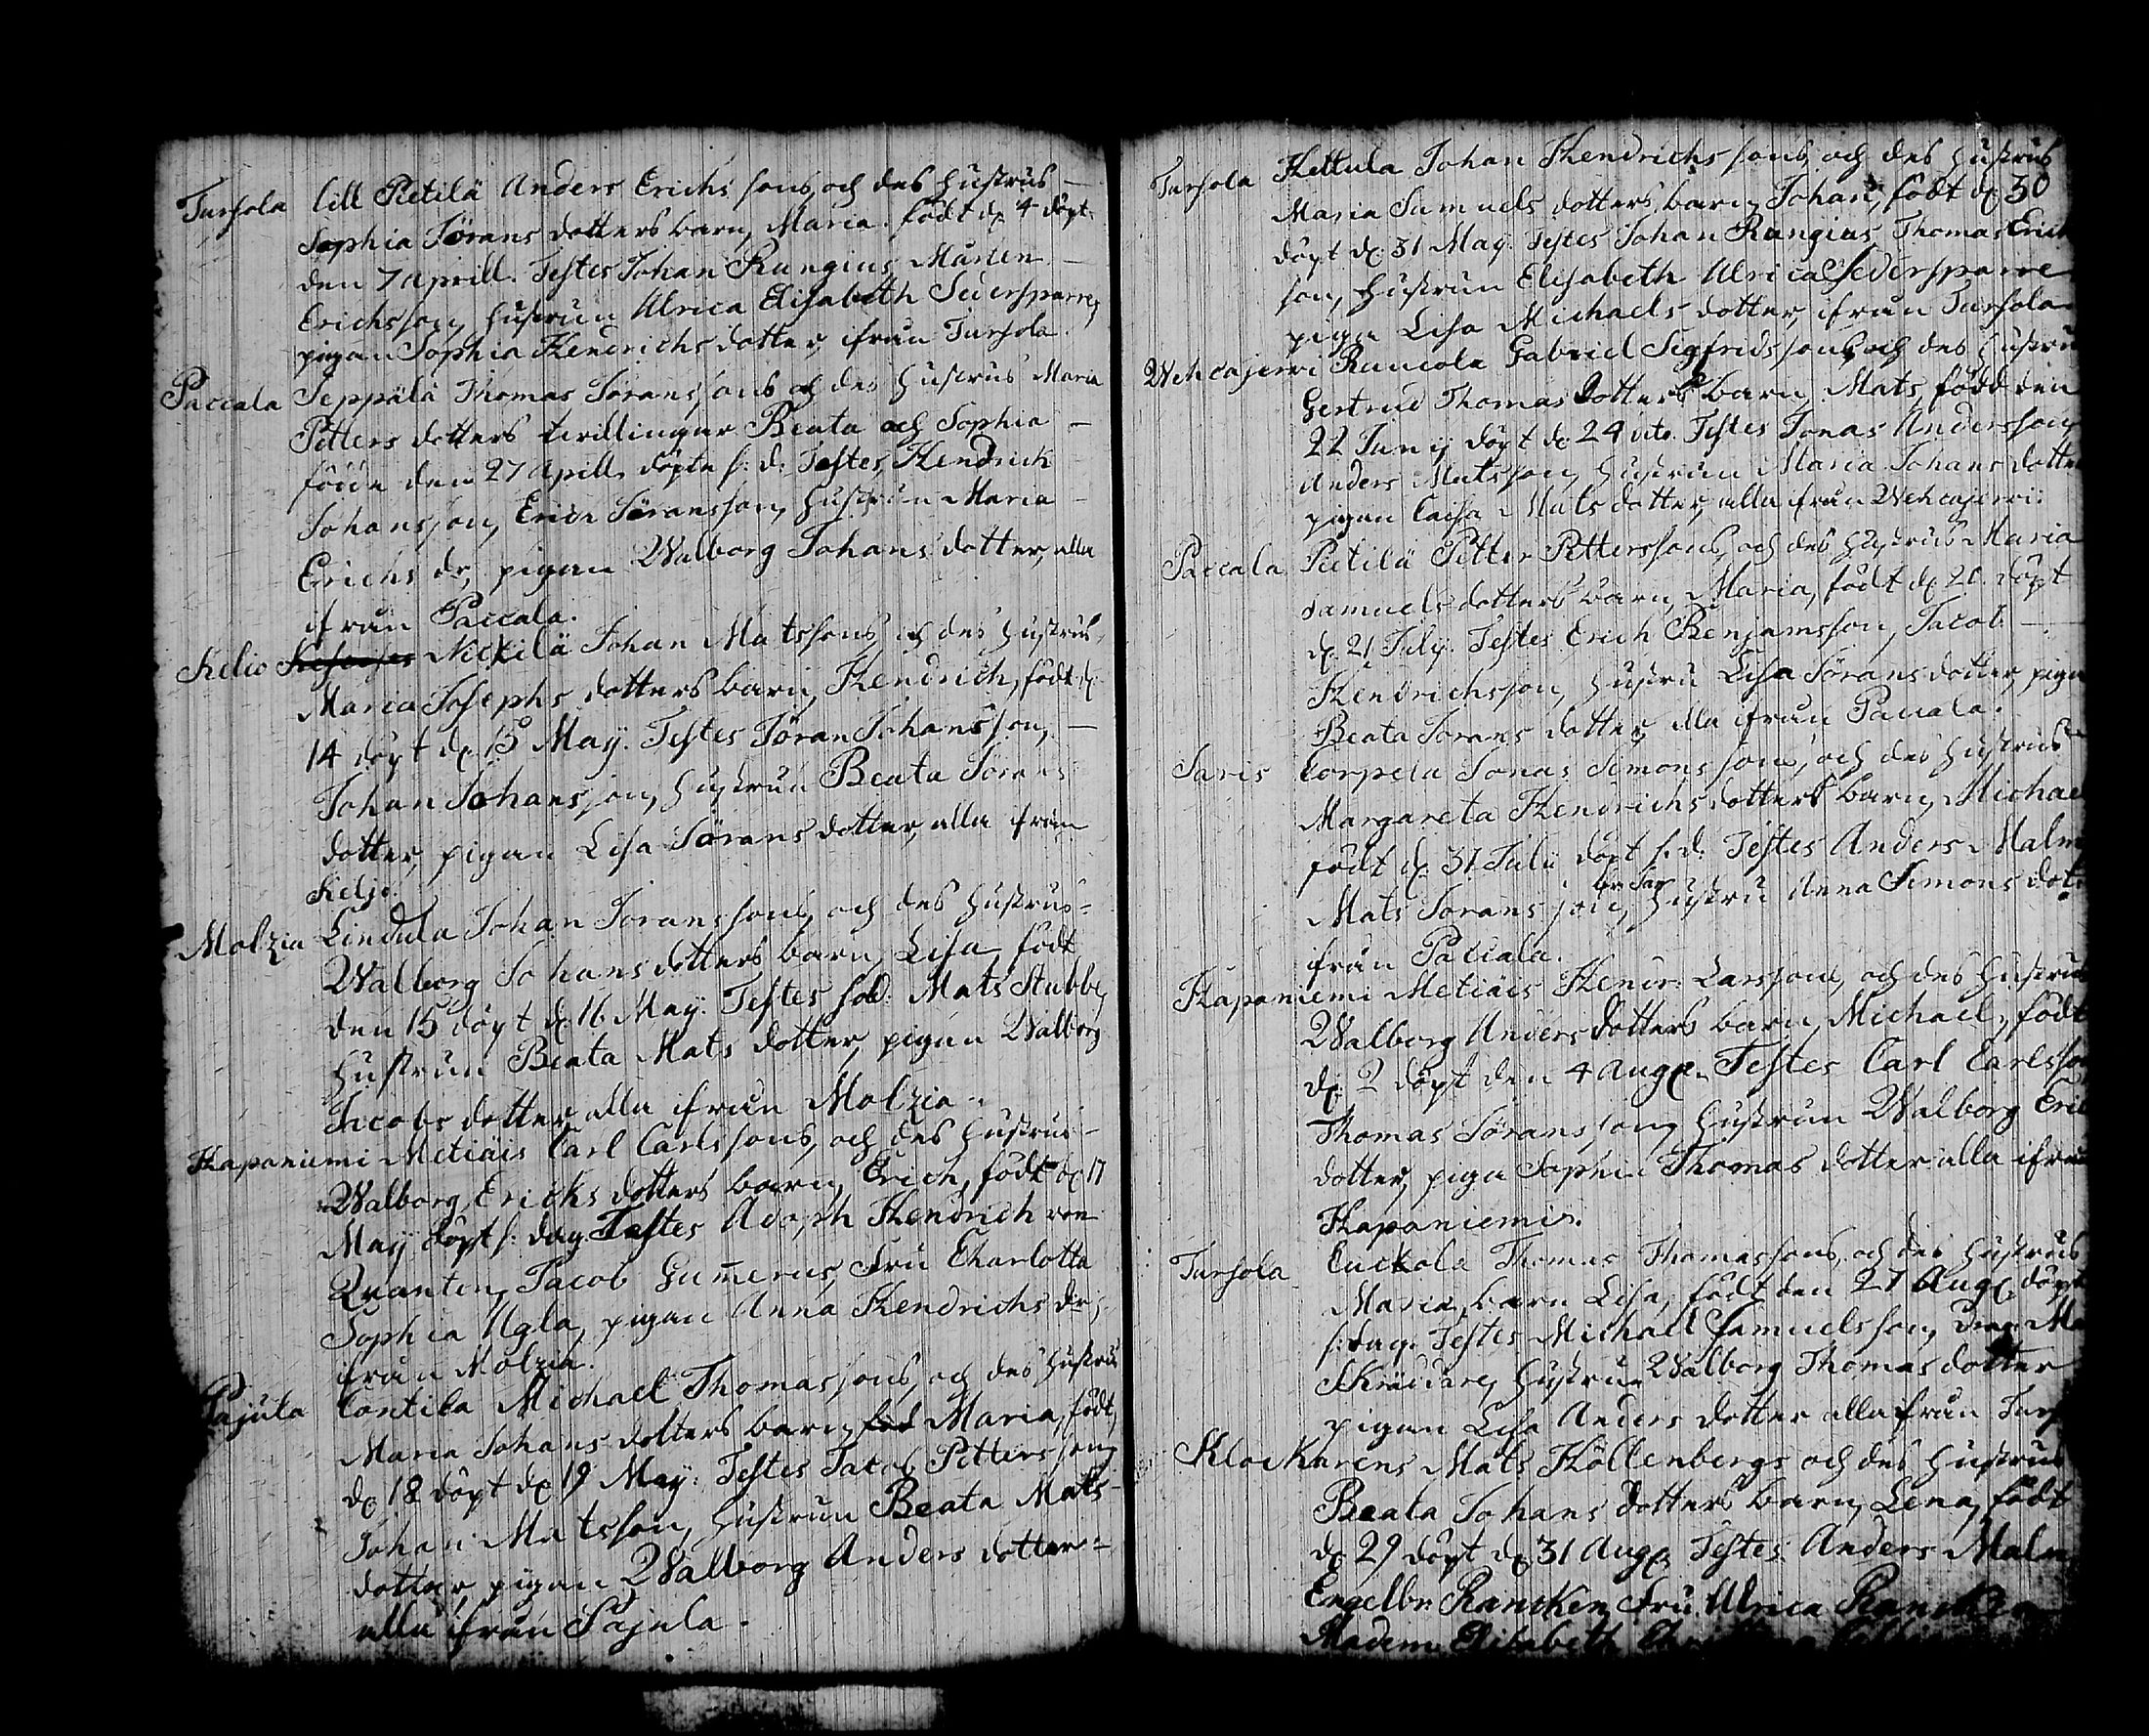 Tursola lill Pietilä Anders Erichs sons och des hustrus
Sophia Jörans dotters barn, Maria. födt d. 4 döpt
den 7 Aprill. Testes Johan Rungius Mårten
Erichsson, hustrun Ulrica Elisabeth Sedersparre,
pigan Sophia Hendrichs dotter, ifrån Tursola.
Paccala Seppälä Thomas Jörans sons och des hustrus Maria
Petters dotters twillingar Beata och Sophia
födde den 27 Apill, döpte s: d: Testes Hendrick
Johansson, Erich Göransson, hustrun Maria
Erichs dr, pigan Walborg Johans dotter, alla
ifrån Paccala.
Kelio Nickilä Johan Matssons, och des hustrus,
Maria Josephs dotters barn, Hendrich, födt d.
14 döpt d. 15 Maij. Testes Jöran Johansson,
Johan Johansson, hustrun Beata Jörans
dotter, pigan Lisa Jörans dotter, alla ifrån
Keljo.
Molzia Lindula Johan Joranssons, och des hustrus
Walborg Johans dotters barn, Lisa, födt
den 15 döpt d. 16 Maij. Testes sold: Mats Stubbe,
hustrun Beata Mats dotter, pigan Walborg
Jacobs dotter, alla ifrån Molzia.
Hapaniemi Metiäis Carl Carlssons, och des hustrus
Walborg Erichs dotters barn, Erich, födt d. 17
Maij döpt s: dag Testes Adoph Hendrich von
Qvanten, Jacob Gum̄erus, Fru Charlotta
Sophia Ugla, pigan Anna Hendrichs dr,
ifrån Molzia.
Pajula Contila Michael Thomassons, och des hustrus
Maria Johans dotters barn, Maria, födt,
d. 18 döpt d. 19 Maij. Testes Jacob Pettersson,
Johan Matsson, hustrun Beata Mats
dotter, pigan Walborg Anders dotter
alla ifrån Pajula.
Tursola Hettula Johan Hendrichs sons, och des hustrus
Maria Samuels dotters barn, Johan, födt d. 30
döpt d. 31 Maij. Testes Johan Rungius, Thomas Erich
son, hustrun Elisabeth Ulrica Sedersparre
piga Lisa Michaels dotter, ifrån Tursola
Wehcajerwi Runcola Gabriel Sigfridssons, och des hustru
Gertrud Thomas dotters barn, Mats, född den
22 Junij döpt d. 24 dito. Testes Jonas Andersson,
Anders Matsson, hustrun Maria Johans dotter
pigan Caisa Mats dotter, alla ifrån Wehcajerwi.
Paccala Pietilä Petter Petterssons, och des hustrus Maria
Samuels dotters barn, Maria, födt d. 20. döpt
d. 21 July. Testes Erich Benjamsson, Jacob
Hendrichsson, hustru Lisa Jörans dotter, piga
Beata Jorans dotter, alla ifrån Paccala.
Saris Corpela Jonas Simonssons, och des hustrus
Margareta Hendrichs dotters barn, Michae
födt d. 31 July döpt s: d: Testes Anders Malm
Mats Joransson, hustru Anna Simons dot
ifrån Paccala.
Hapaniemi Metiäis Hendr: Larssons, och des hustrus
Walborg Anders dotters barn, Michael, födt
d. 2 döpt den 4 Aug. Testes Carl Carlsson
Thomas Jöransson, hustrun Walborg Eric
dotter, piga Sophia Thomas dotter alla ifrån
Hapaniemi.
Tursola Cuckola Thomas Thomassons, och des hustrus
Maria, barn Lisa, födt den 27 Aug. döpt
s: dag. Testes Michael Samuelsson, Ma
Skräddare, hustrun Walborg Thomas dotter
pigan Lisa Anders dotter alla ifrån Turs
Klockarens Mats Höllenbergs och des hustrus
Beata Johans dotters barn, Lena, födt
d. 29 döpt d. 31 Aug. Testes Anders Malm
Engelbr: Rancken, Fru Ulrica Rancken
Madem: Elisabeth